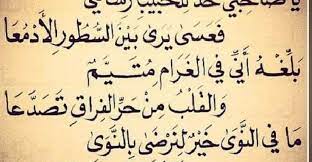 يا صاحبي خذ للحبيب رسالتي
فَعَسَى يَرَى بَيْنَ السُّطُورِ الأَدْمُعَا
بَلِّغْهُ أَنِّي فِي الغَرَامِ مُتَيَّمٌ
وَالقَلْبُ مِنْ حَرِّ الفِرَاقِ تَصَدَّعَا
مَا فِي النَّوَى خَيْرٌ لِنَرْضَى بِالنَّوَى